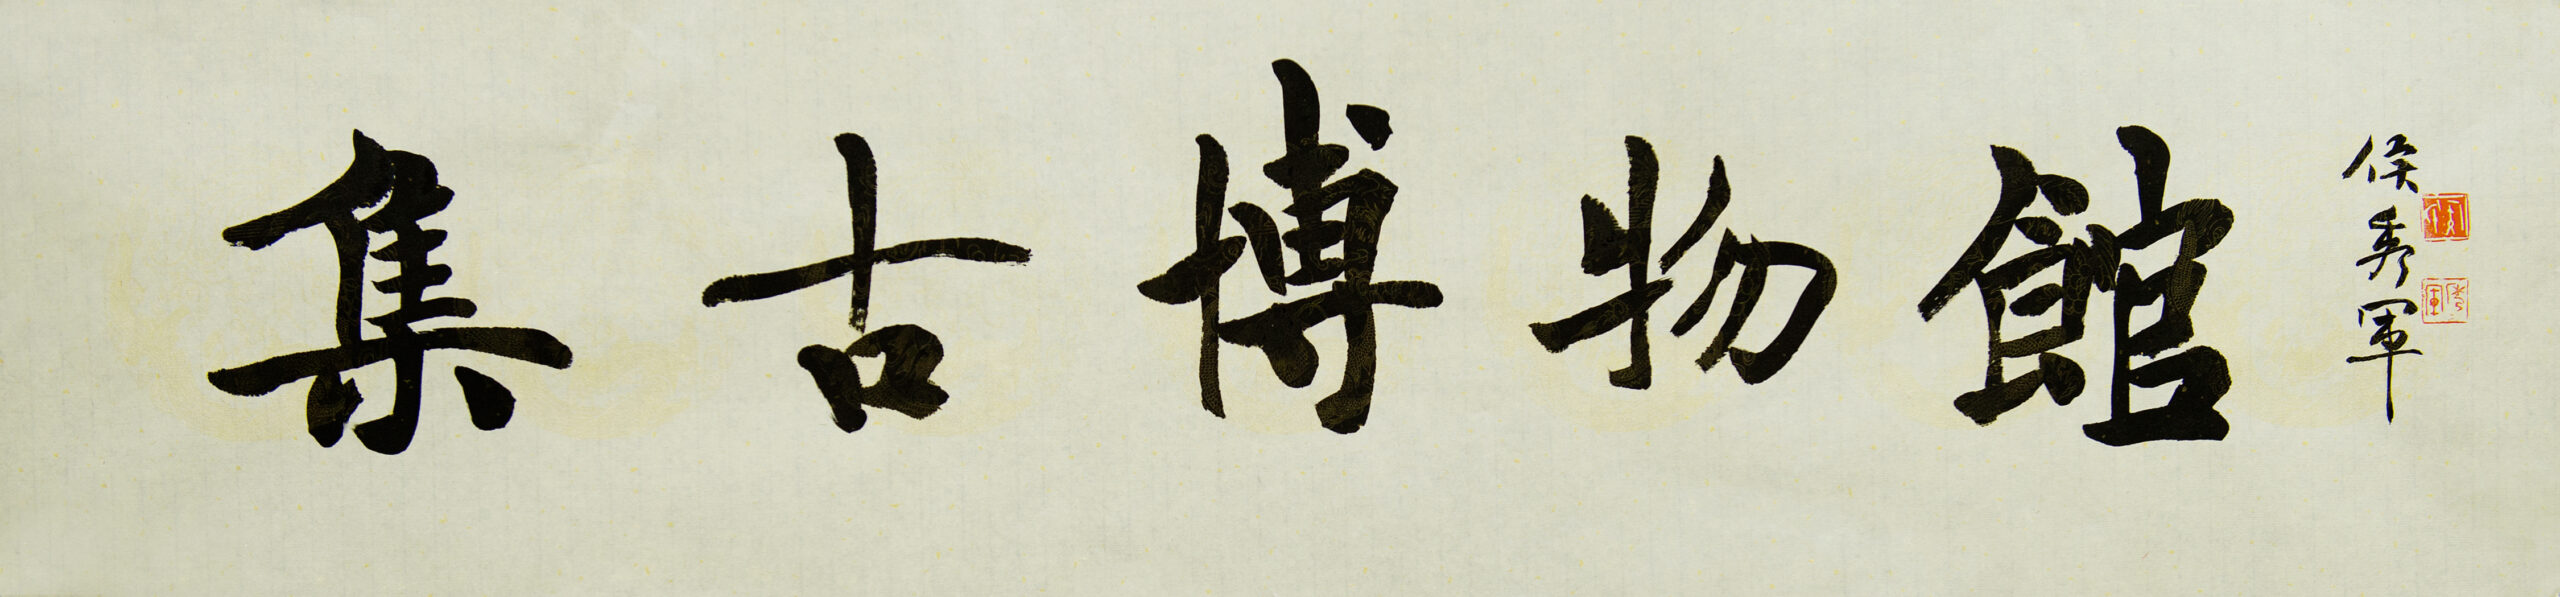 集古博物館
侯秀軍